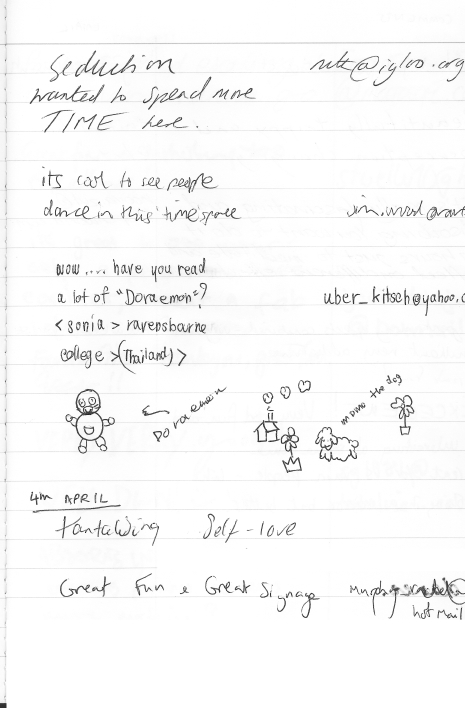 Seduction
wanted to spend more
TIME here.
its cool to see people
dance in this 'time' space
wow.... have you read
a lot of "Doraemon"?
uber_kitsch@yahoo.c
<sonia> ravensbourne
college >(Thailand)>
Doraemon
momo the dog
4th APRIL
tantalizing Self-love
Great Fun & Great Signage Murphy
hot mail